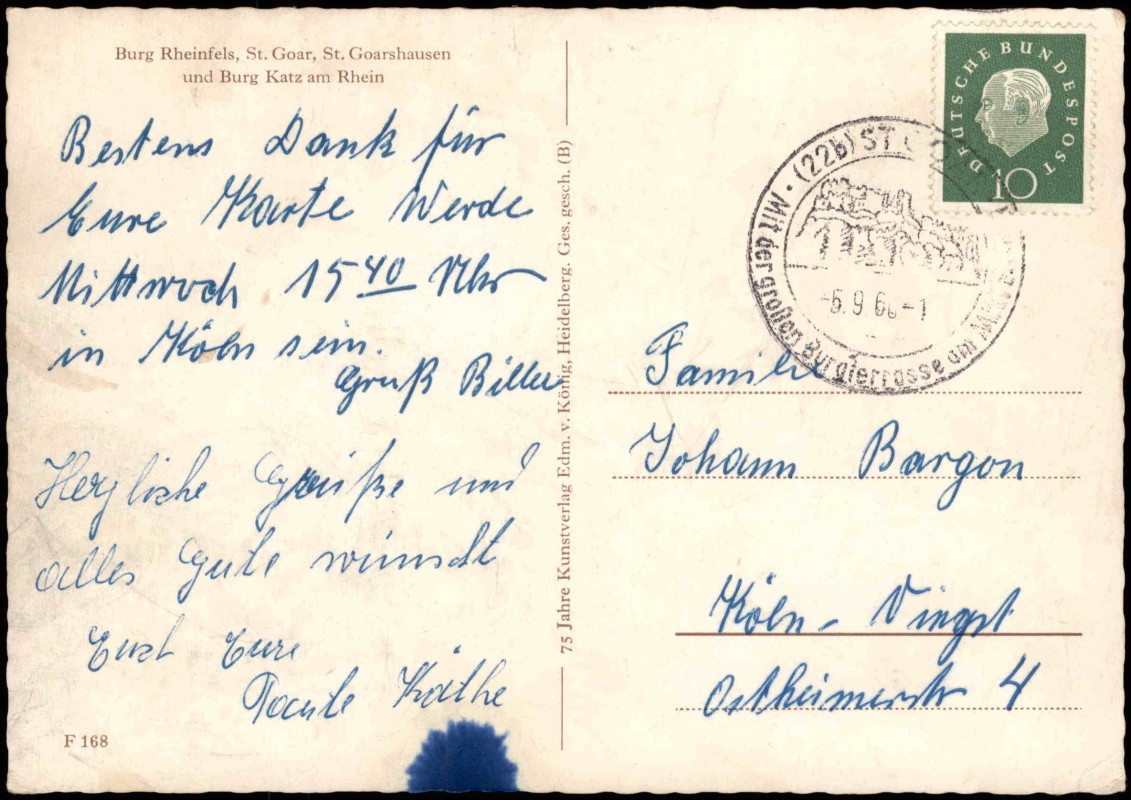 Burg Rheinfels, St. Goar, St. Goarshausen
und Burg Katz am Rhein
Bestens Dank für
Eure Karte Werde
Mittwoch 15 40 Uhr
in Köln sein.
Gruß
Herzliche Grüße und
alles Gute wünscht
Euch Eure
Tante Käthe
F 168
75 Jahre Kunstverlag Edm. v. König, Heidelberg. Ges. gesch. (B)
DEUTSCHE BUNDESPOST
10
(22b) ST.
Mit der großen Burgterrasse am
-6.9.60-1
Familie
Johann Bargon
Köln - Vingst
Ostheimerstr 4